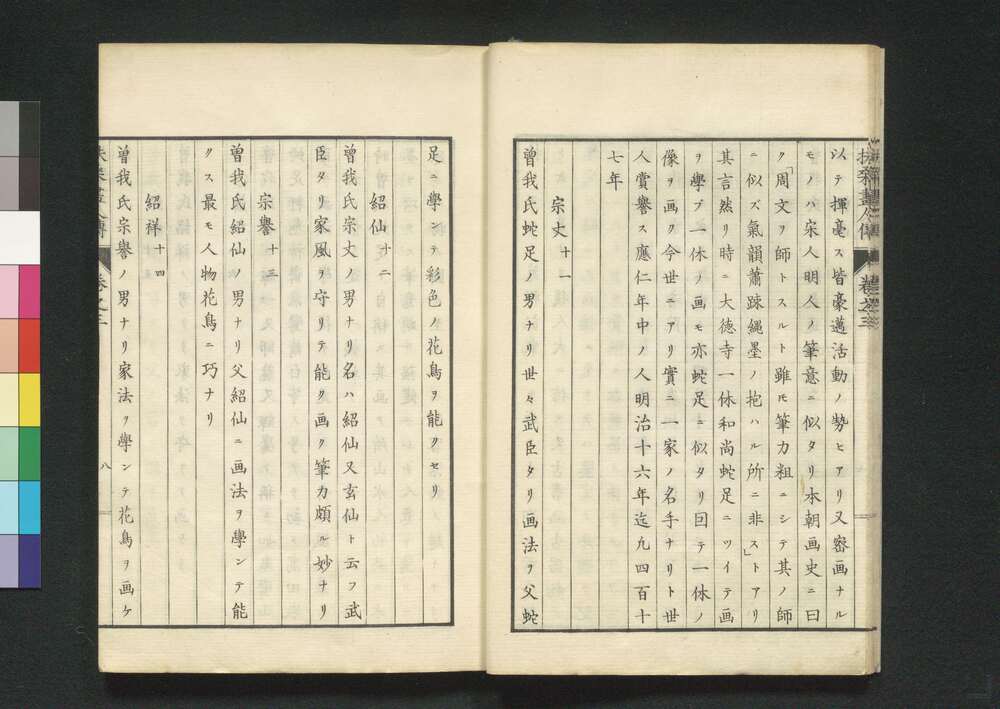 以テ揮毫ス皆豪邁活動ノ勢ヒアリ又密画ナル
モノハ宋人明人ノ筆意ニ似タリ本朝画史ニ曰
ク「周文ヲ師トスルト雖モ筆力粗ニシテ其ノ師
ニ似ズ氣韻蕭踈縄墨ノ抱ハル所ニ非ス」トアリ
其言然リ時ニ大徳寺一休和尚蛇足ニツイテ画
ヲ學ブ一休ノ画モ亦蛇足ニ似タリ回テ一休ノ
像ヲ画ク今世ニアリ實ニ一家ノ名手ナリト世
人賞譽ス應仁年中ノ人明治十六年迄凡四百十
七年
宗丈 十一
曽我氏蛇足ノ男ナリ世々武臣タリ画法ヲ父蛇
足ニ學ンテ彩色ノ花鳥ヲ能クセリ
紹仙 十二
曽我氏宗丈ノ男ナリ名ハ紹仙又玄仙ト云フ武
臣タリ家風ヲ守リテ能ク画ク筆力頗ル妙ナリ
宗譽 十三
曽我氏紹仙ノ男ナリ父紹仙ニ画法ヲ學ンテ能
クス最モ人物花鳥ニ巧ナリ
紹祥 十四
曽我氏宗譽ノ男ナリ家法ヲ學ンテ花鳥ヲ画ケ
卷之三
八